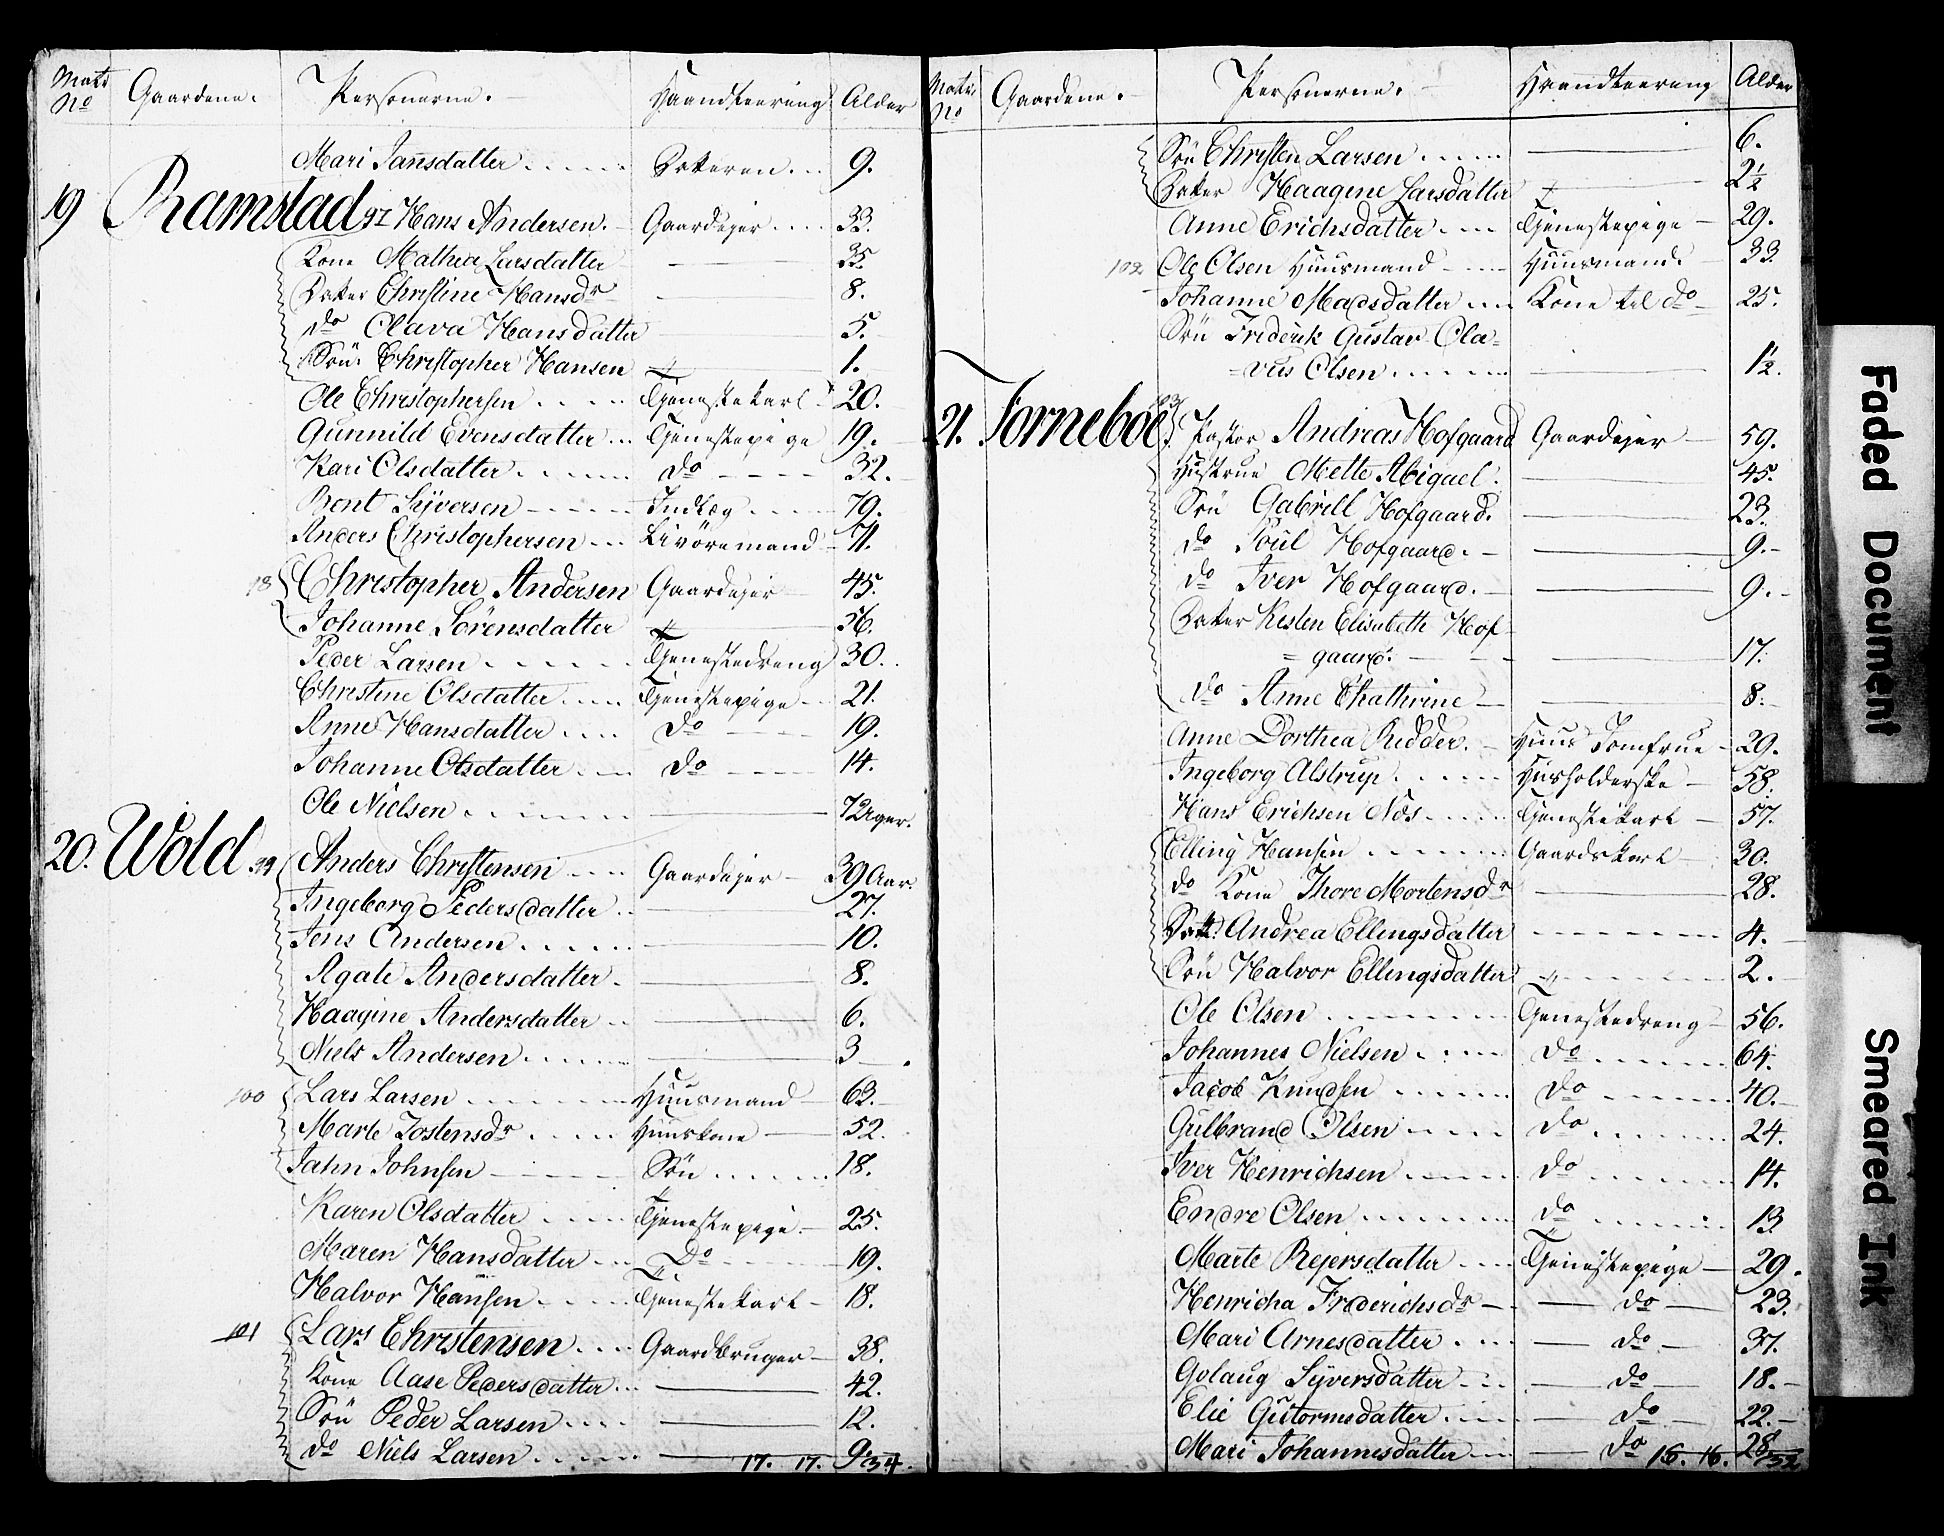 Matr No Gaardene. Personerne. Haandteering Alder
Mari Jansdatter Datteren 9.
19 Ramstad 97 Hans Andersen. Gaardejer 33.
Kone Mathia Larsdatter 35.
Datter Christine Hansdr 8.
do Olava Hansdatter 5.
Søn Christopher Hansen 1.
Ole Christophersen Tjenestekarl 20.
Gunnild Evensdatter Tjenestepige 19.
Kari Olsdatter do 32.
Bent Syversen Indlæg 79.
Anders Christophersen Livøremand 71.
98 Christopher Andersen Gaardejer 45.
Johanne Sørensdatter 56.
Peder Larsen Tjenestedreng 30.
Christine Olsdatter Tjenestepige 21.
Anne Hansdatter do 19.
Johanne Olsdatter do 14.
Ole Nielsen 72 Uger.
20. Wold 99 Anders Christensen Gaardejer 39 Aar.
Ingeborg Pedersdatter 27.
Jens Andersen 10.
Agate Andersdatter 8.
Haagine Andersdatter 6.
Niels Andersen 3
100 Lars Larsen Huusmand 63.
Marte Jostensdr Huuskone 52.
Jahn Johnsen Søn 18.
Karen Olsdatter Tjenestepige 25.
Maren Hansdatter Do 19.
Halvor Hansen Tjenestekarl 18.
101 Lars Christensen Gaardbruger 38.
Kone Aase Pedersdatter 42.
Søn Peder Larsen 12.
do Niels Larsen 9.
17. 17. 34.
Matr. No Gaardene. Personerne. Haandteering Alder
Søn Christen Larsen 6.
Datter Haagine Larsdatter 2 1/2
Anne Erichsdatter Tjenestepige 29.
102 Ole Olsen Huusmand Huusmand 33.
Johanne Madsdatter Kone til do 25.
Søn Friderik Gustav Ola=
=vus Olsen 1 1/2.
21. Torneboe 103 Pastor Andreas Hofgaard Gaardejer 59.
Hustrue Mette Abigael. 45.
Søn Gabriell Hofgaard. 23.
do Poul Hofgaard. 9.
do Iver Hofgaard. 9.
Datter Kesten Elisabeth Hof
=gaard. 17.
do Anne Chathrine 8.
Anne Dorthea Ridder. Huus Jomfrue 29.
Ingeborg Alstrup Huusholderske 58.
Hans Erichsen Næs Tjenestekarl 57.
Elling Hansen Gaardskarl 30.
do Kone Thore Mortensdr 28.
Datt. Andrea Ellingsdatter 4.
Søn Halvor Ellingsdatter 2.
Ole Olsen Tjenestedreng 56.
Johannes Nielsen do 64.
Jacob Knudsen do 40.
Gulbrand Olsen do 24.
Iver Henrichsen do 14.
Endre Olsen do 13
Marte Rejersdatter Tjenestepige 29.
Henricha Frederichsdr do 23.
Mari Arnesdatter do 37.
Golaug Syversdatter do 18.
Elie Gutormsdatter do 22.
Mari Johannesdatter do 28.
16. 16. 32
Faded Document
Smeared Ink